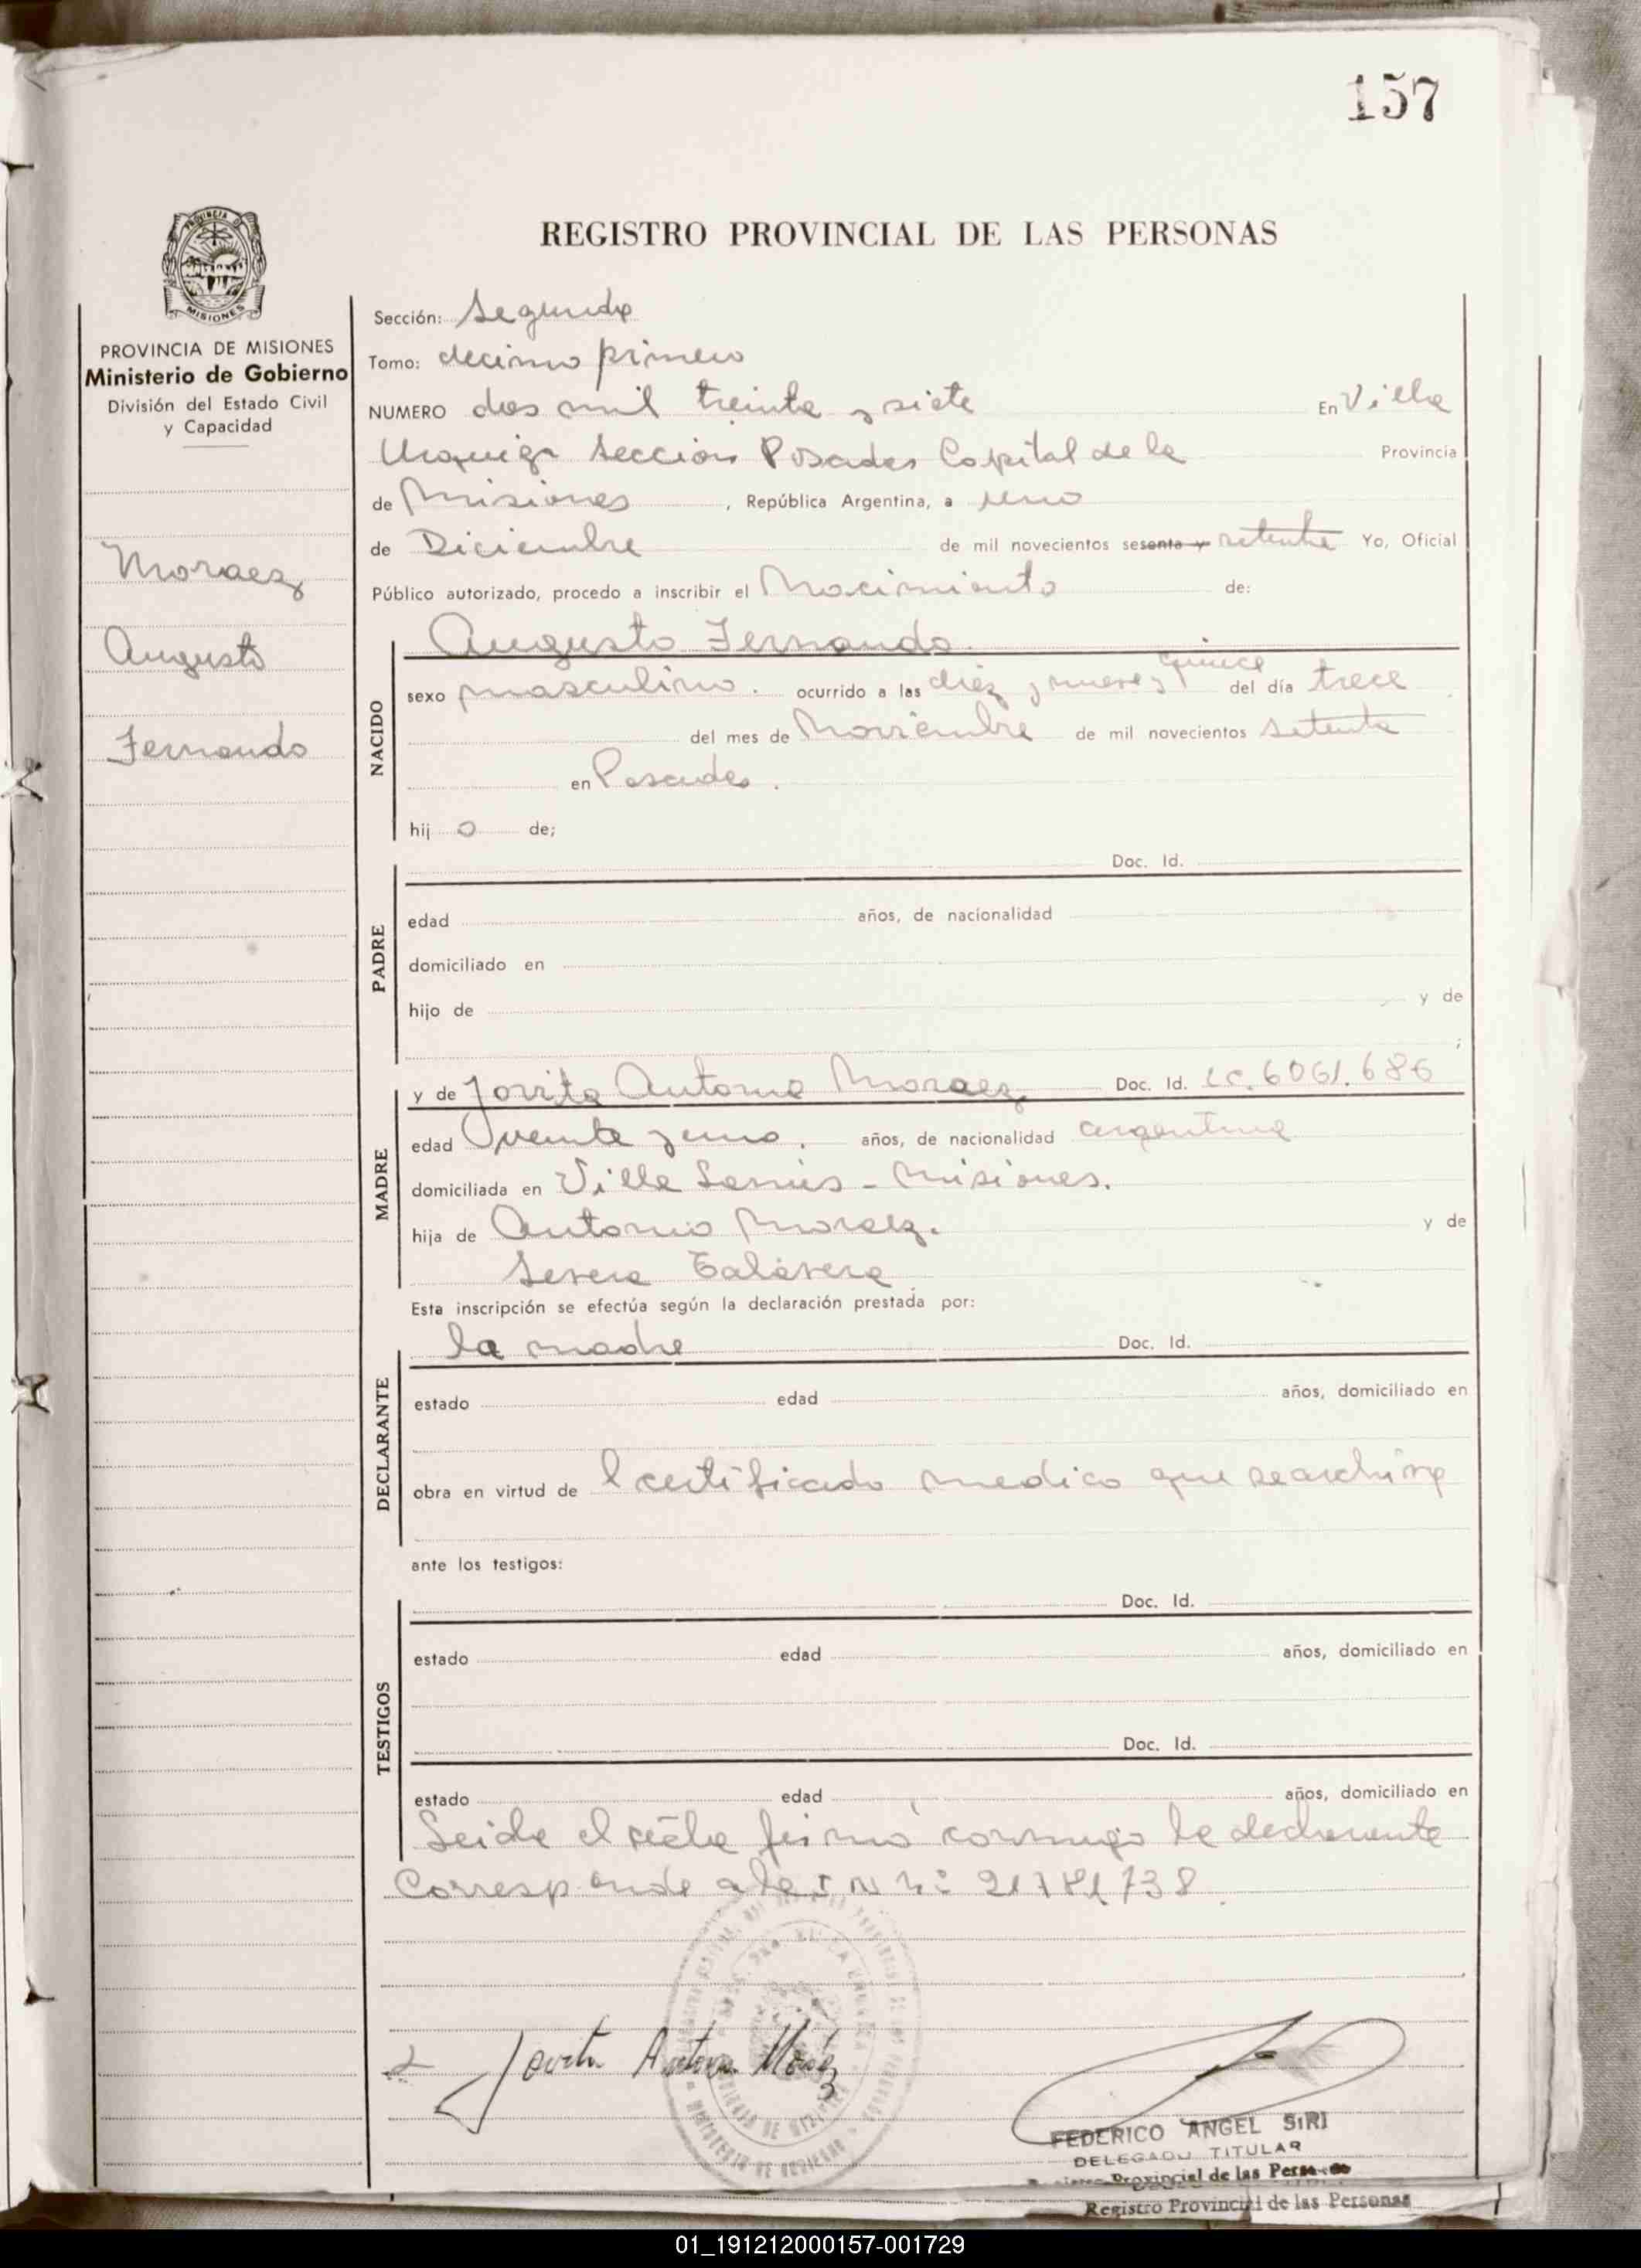 157
PROVINCIA DE MISIONES
REGISTRO PROVINCIAL DE LAS PERSONAS
PROVINCIA DE MISIONES
Ministerio de Gobierno
División del Estado Civil
y Capacidad
Moraez
Augusto
Fernando
Sección: Segunda
Tomo: decimo primero
NUMERO dos mil treinta y siete En Villa
Urquiza Sección Posadas Capital de la Provincia
de Misiones, República Argentina, a uno
de Diciembre de mil novecientos sesenta y setenta Yo, Oficial
Público autorizado, procedo a inscribir el Nacimiento de:
NACIDO
Augusto Fernando.
sexo masculino. ocurrido a las diez y nueve y quince del día trece
del mes de Noviembre de mil novecientos setenta
en Posadas.
hijo de;
PADRE
Doc. Id.
edad años, de nacionalidad
domiciliado en
hijo de y de
;
MADRE
y de Jovita Antonia Moraez Doc. Id. LC. 6061.686
edad veinte y uno. años, de nacionalidad argentina
domiciliada en Villa Lanús - Misiones.
hija de Antonio Moraez. y de
Severa Talavera
Esta inscripción se efectúa según la declaración prestada por:
DECLARANTE
la madre Doc. Id.
estado edad años, domiciliado en
obra en virtud de l certificado medico que se archiva
ante los testigos:
TESTIGOS
Doc. Id.
estado edad años, domiciliado en
Doc. Id.
estado edad años, domiciliado en
Leida el acta firmó conmigo la declarante
Corresponde a la I N Nº 21781738
Jovita Antonia
FEDERICO ANGEL SIRI
DELEGADO TITULAR
Provincial de las Personas
Registro Provincial de las Personas
01_191212000157-001729